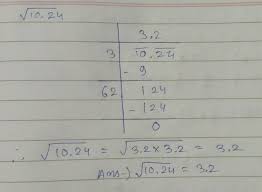 √10.24
3.2
3 10.24
- 9
62 124
- 124
0
∴ √10.24 = √3.2×3.2 = 3.2
Ans → √10.24 = 3.2